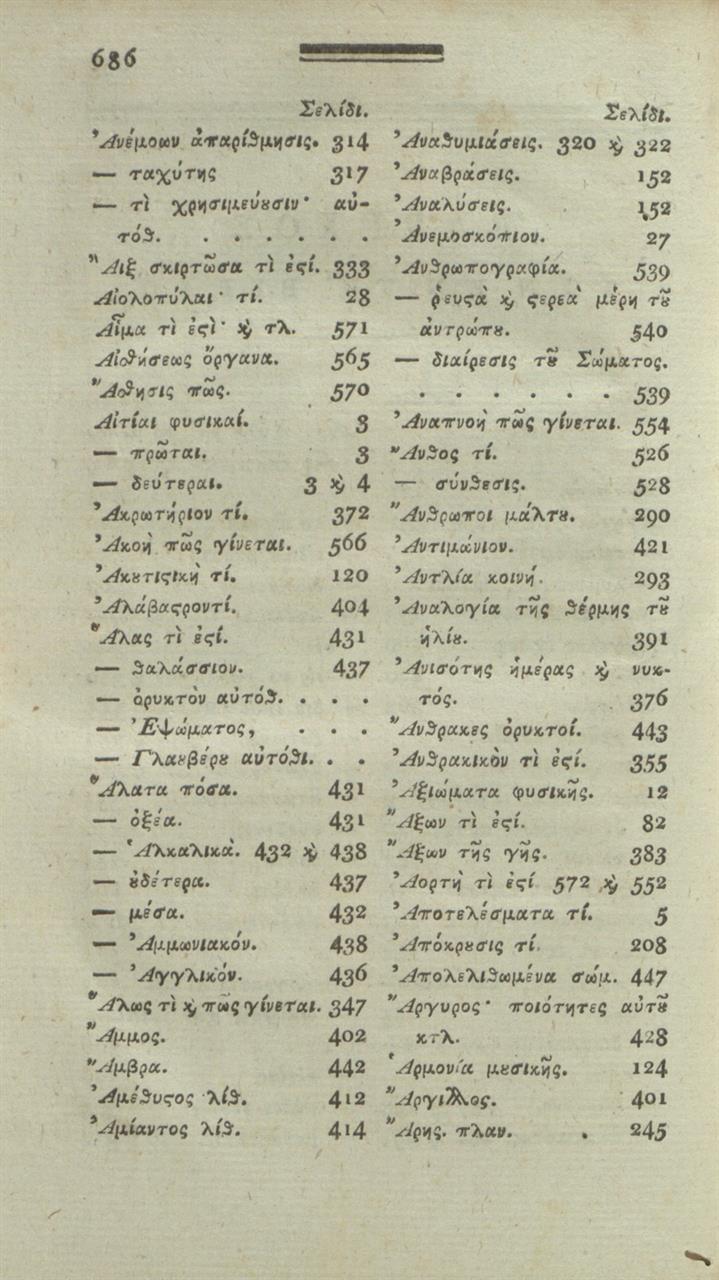 686
Σελίδι.
Ἀνέμοων ἀπαρίθμησις. 314
— ταχύτης 317
— τὶ χρησιμεύȣσιν· αὐ-
τόθ. . . . . . .
Ἂιξ σκιρτῶσα τὶ ἐςί. 333
Αἰολοπύλαι· τί. 28
Αἷμα τὶ ἐςὶ· ϗ τλ. 571
Αἰσθήσεως ὄργανα. 565
Ἄσθησις πῶς. 570
Αἰτίαι φυσικαί. 3
— πρῶται. 3
— δεύτεραι. 3 ϗ 4
Ἀκρωτήριον τί. 372
Ἀκοὴ πῶς γίνεται. 566
Ἀκȣτιςικὴ τί. 120
Ἀλάβαςροντί. 404
Ἅλας τὶ ἐςί. 431
— θαλάσσιον. 437
— ὀρυκτὸν αὐτόθ. . . .
— Ἐψώματος, . . .
— Γλαυβέρȣ αὐτόθι. . .
Ἅλατα πόσα. 431
— ὀξέα. 431
— Ἁλκαλικὰ. 432 ϗ 438
— ȣδέτερα. 437
— μέσα. 432
— Ἀμμωνιακόν. 438
— Ἀγγλικόν. 436
Ἅλως τὶ ϗ πῶς γίνεται. 347
Ἄμμος. 402
Ἄμβρα. 442
Ἀμέθυςος λίθ. 412
Ἀμίαντος λίθ. 414
Σελίδι.
Ἀναθυμιάσεις. 320 ϗ 322
Ἀναβράσεις. 152
Ἀναλύσεις. 152
Ἀνεμοσκόπιον. 27
Ἀνθρωπογραφία. 539
— ῥευςὰ ϗ ςερεὰ μέρη τȣ͂
ἀντρώπȣ. 540
— διαίρεσις τȣ͂ Σώματος.
. . . . . . 539
Ἀναπνοὴ πῶς γίνεται. 554
Ἄνθος τί. 526
— σύνθεσις. 528
Ἄνθρωποι μάλτȣ. 290
Ἀντιμώνιον. 421
Ἀντλία κοινή. 293
Ἀναλογία τῆς θέρμης τȣ͂
ἡλίȣ. 391
Ἀνισότης ἡμέρας ϗ νυκ-
τός. 376
Ἄνθρακες ὀρυκτοί. 443
Ἀνθρακικὸν τὶ ἐςί. 355
Ἀξιώματα φυσικῆς. 12
Ἄξων τὶ ἐςί. 82
Ἄξων τῆς γῆς. 383
Ἀορτὴ τὶ ἐςί 572 ϗ 552
Ἀποτελέσματα τί. 5
Ἀπόκρȣσις τί. 208
Ἀπολελιθωμένα σώμ. 447
Ἄργυρος· ποιότητες αὐτȣ͂
κτλ. 428
Ἁρμονία μȣσικῆς. 124
Ἄργιλλος. 401
Ἄρης. πλαν. . 245